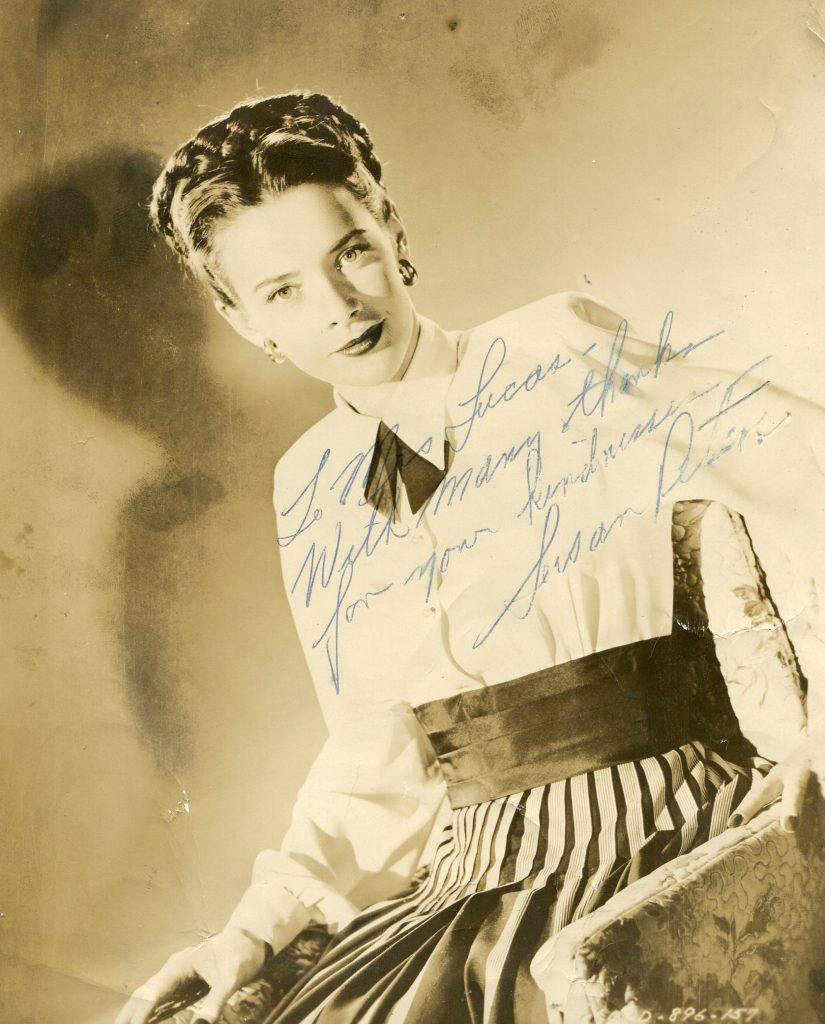 To Mrs Lucas-
With many thanks
for your kindness-
Susan Peters
D-896-157